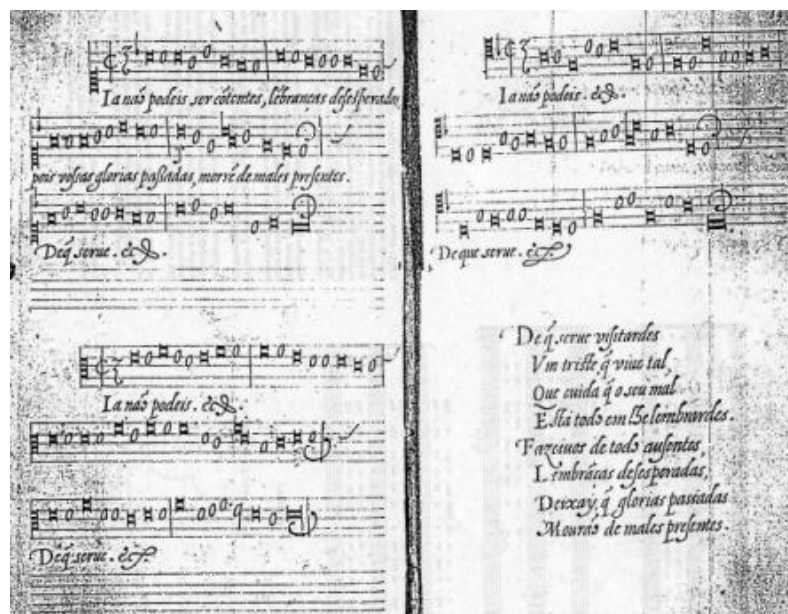 Ia naõ podeis, ser cõtentes, lẽbranças desesperadas
pois vossas glorias passadas, morrẽ de males presentes.
Deq̃ serue. &c.
Ia naõ podeis. &c.
Deq̃ serue. &c.
Ia naõ podeis. &c.
De que serue. &c.
De q̃ serue visitardes
Vm triste q̃ viue tal,
Que cuida q̃ o seu mal
Está todo em lhe lembrardes.
Fazeiuos de todo ausentes,
Lembrãças desesperadas,
Deixay, q̃ glorias passadas
Mouraõ de males presentes.